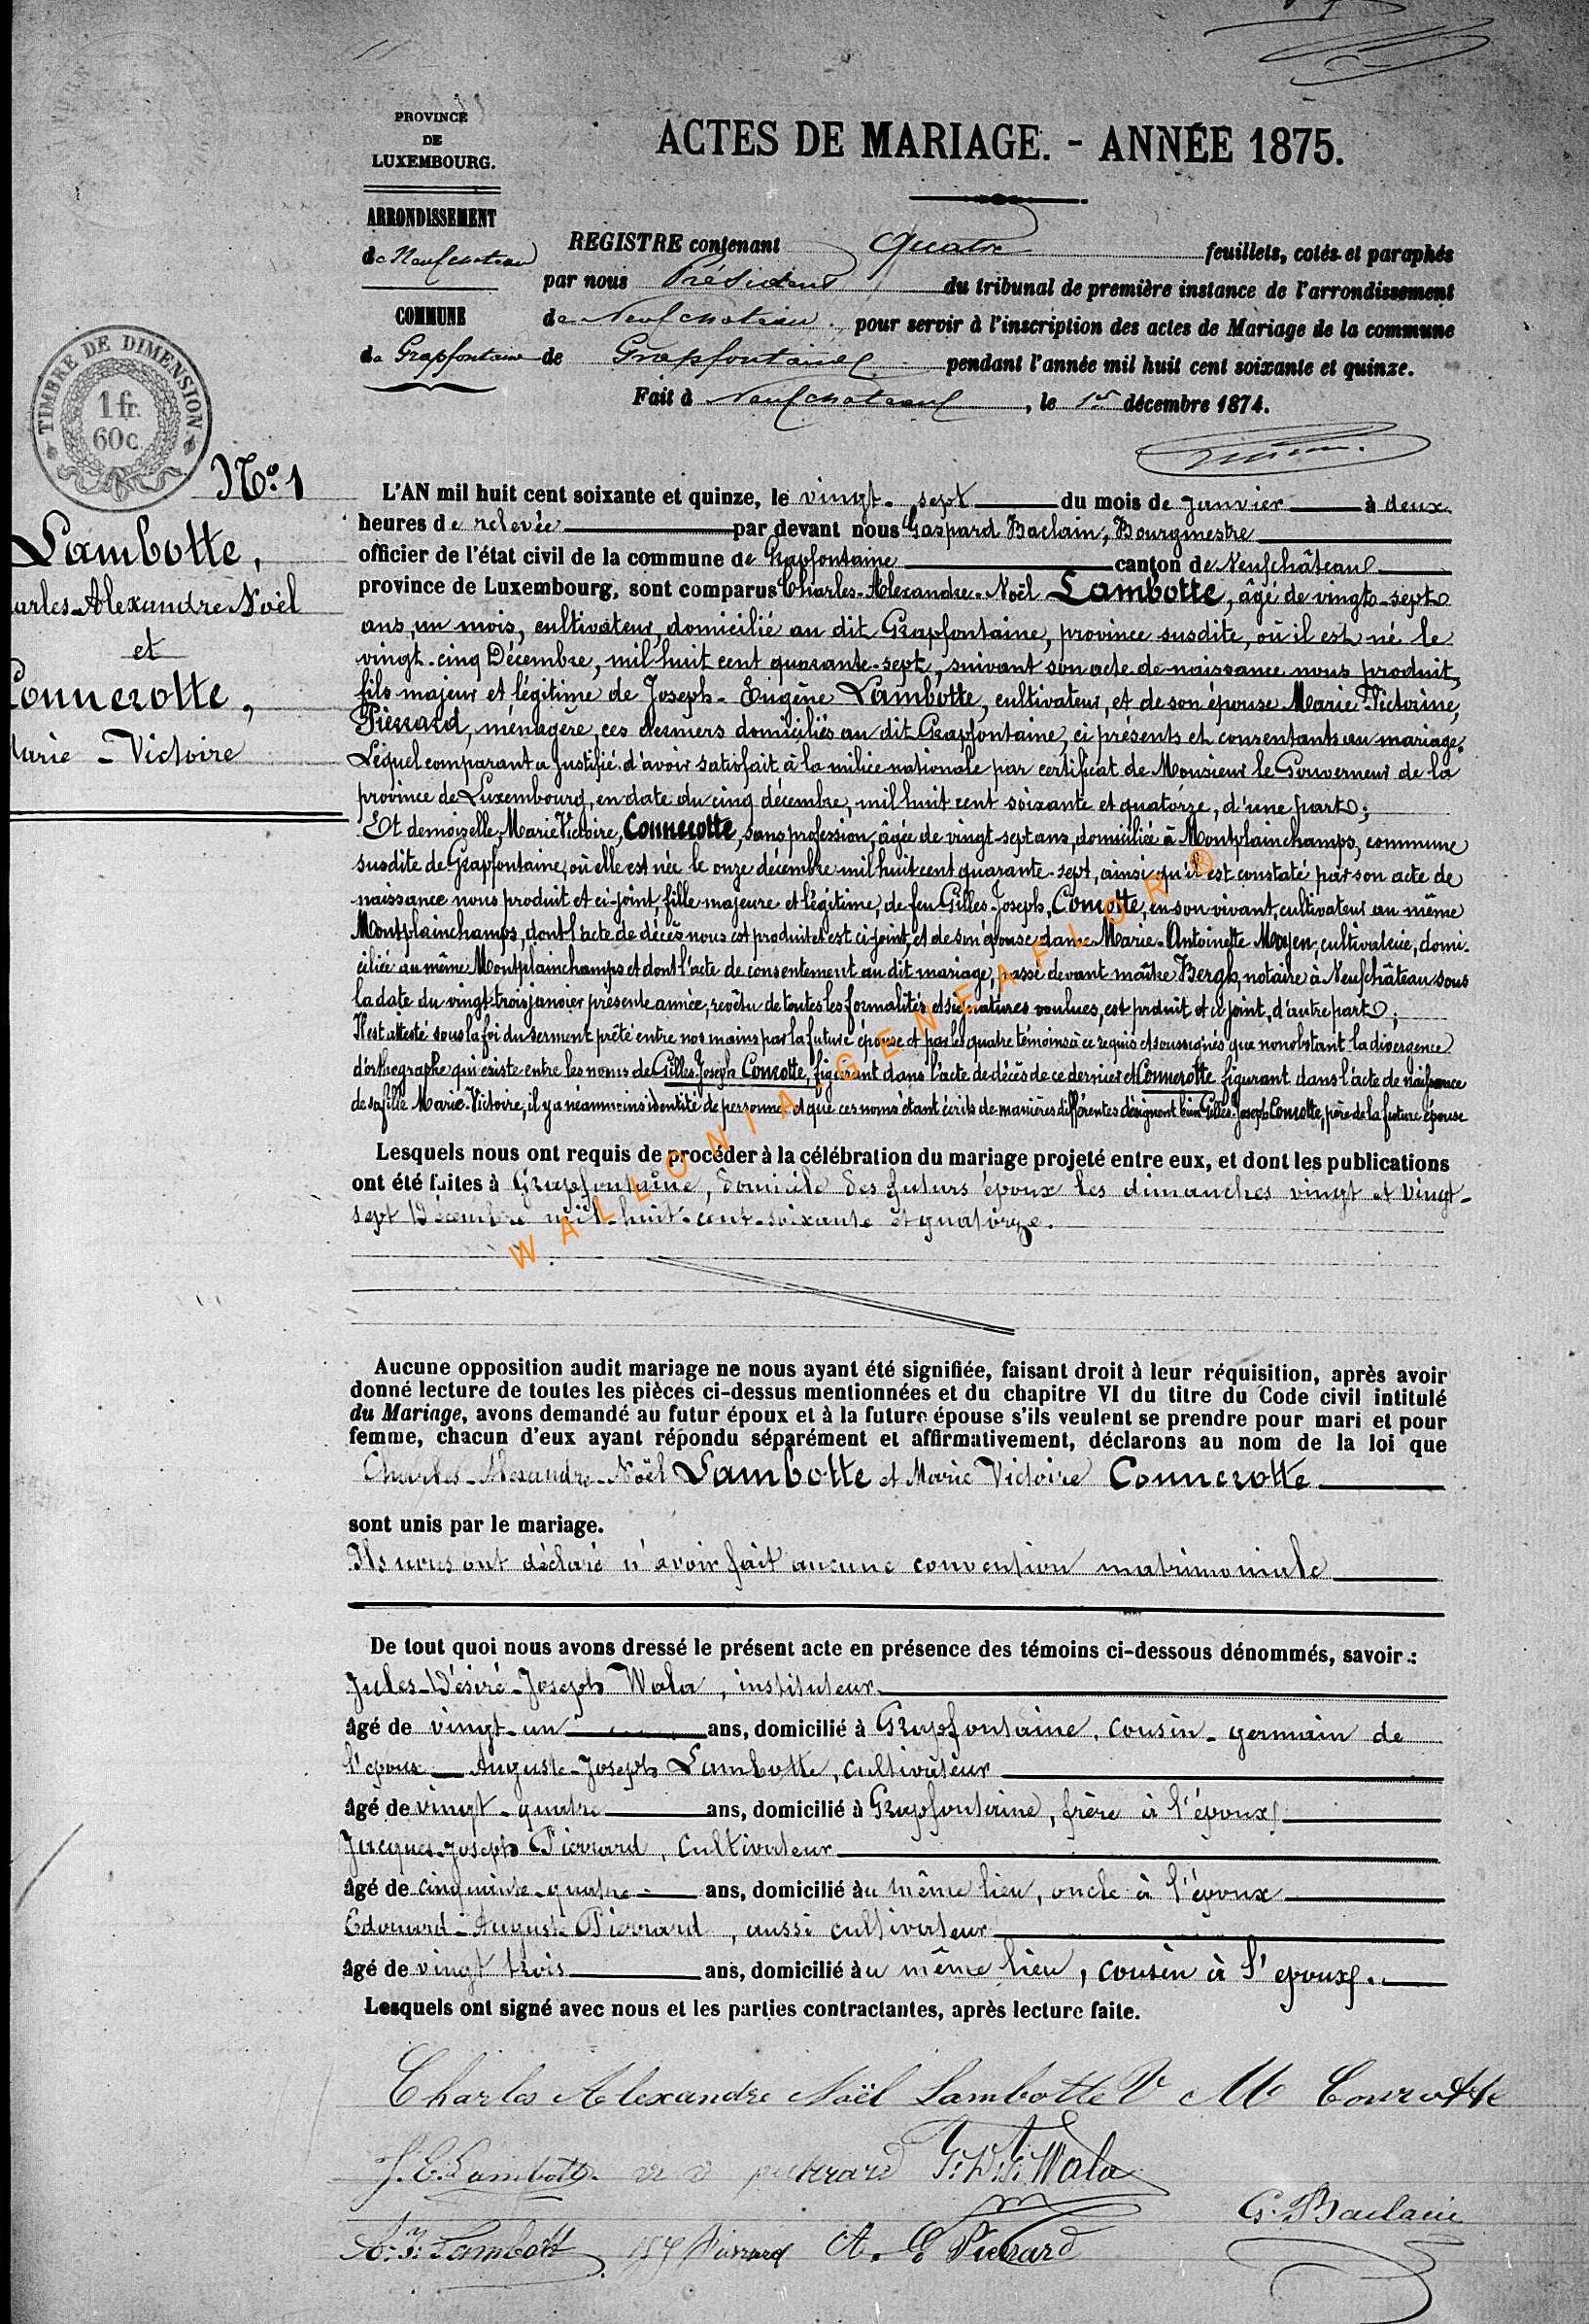 PROVINCE
DE
LUXEMBOURG.
ACTES DE MARIAGE. - ANNÉE 1875.
ARRONDISSEMENT
de Neufchateau
COMMUNE
de Grapfontaine
REGISTRE contenant Quatre feuillets, cotés et paraphés
par nous Président du tribunal de première instance de l'arrondissement
de Neufchateau pour servir à l'inscription des actes de Mariage de la commune
de Grapfontaine pendant l'année mil huit cent soixante et quinze.
Fait à Neufchateau, le 1er décembre 1874.
TIMBRE DE DIMENSION
1 fr.
60 c.
No. 1
Lambotte,
arles-Alexandre Noël
et
Connerotte,
arie - Victoire
L'AN mil huit cent soixante et quinze, le vingt-sept du mois de janvier à deux
heures de relevée par devant nous Gaspard Baclain, Bourgmestre
officier de l'état civil de la commune de Grapfontaine canton de Neufchâteau
province de Luxembourg, sont comparus Charles-Alexandre-Noël Lambotte, âgé de vingt-sept
ans, un mois, cultivateur, domicilié au dit Grapfontaine, province susdite, où il est né le
vingt-cinq Décembre, mil huit cent quarante-sept, suivant son acte de naissance nous produit,
fils majeur et légitime de Joseph-Eugène Lambotte, cultivateur, et de son épouse Marie-Victorine,
Pierrard, ménagère, ces derniers domiciliés au dit Grapfontaine, ci présents et consentants au mariage.
Lequel comparant a Justifié d'avoir satisfait à la milice nationale par certificat de Monsieur le Gouverneur de la
province de Luxembourg, en date du cinq décembre, mil huit cent soixante et quatorze, d'une part;
Et demoiselle, Marie Victoire, Connerotte, sans profession, âgée de vingt-sept ans, domiciliée à Montplainchamps, commune
susdite de Grapfontaine, où elle est née le onze décembre mil huit cent quarante-sept, ainsi qu'il est constaté par son acte de
naissance nous produit et ci-joint, fille majeure et légitime, de feu Gilles-Joseph, Conrotte, en son vivant, cultivateur au même
Montplainchamps, dont l'acte de décès nous est produit et est ci-joint, et de son épouse dame Marie-Antoinette Moyen, cultivatrice, domi-
ciliée au même Montplainchamps et dont l'acte de consentement au dit mariage, passé devant maître Bergh, notaire à Neufchâteau sous
la date du vingt trois janvier présente année, revêtu de toutes les formalités et signatures voulues, est produit et ci joint, d'autre part;
Il est attesté sous la foi du serment prêté entre nos mains par la future épouse et par les quatre témoins à ce requis et soussignés que nonobstant la divergence
d'orthographe qui existe entre les noms de Gilles-Joseph Conrotte, figurant dans l'acte de décès de ce dernier et Connerotte figurant dans l'acte de naissance
de sa fille Marie-Victoire, il y a néanmoins identité de personne et que ces noms étant écrits de manières différentes désignent bien Gilles-Joseph Conrotte, père de la future épouse
Lesquels nous ont requis de procéder à la célébration du mariage projeté entre eux, et dont les publications
ont été faites à Grapfontaine, domicile des futurs époux les dimanches vingt et vingt-
sept Décembre mil-huit-cent-soixante et quatorze.
WALLONIA-GENEAFLOR®
Aucune opposition audit mariage ne nous ayant été signifiée, faisant droit à leur réquisition, après avoir
donné lecture de toutes les pièces ci-dessus mentionnées et du chapitre VI du titre du Code civil intitulé
du Mariage, avons demandé au futur époux et à la future épouse s'ils veulent se prendre pour mari et pour
femme, chacun d'eux ayant répondu séparément et affirmativement, déclarons au nom de la loi que
Charles-Alexandre-Noël Lambotte et Marie Victoire Connerotte
sont unis par le mariage.
Ils nous ont déclaré n'avoir fait aucune convention matrimoniale
De tout quoi nous avons dressé le présent acte en présence des témoins ci-dessous dénommés, savoir :
Jules-Désiré-Joseph Wala, instituteur
âgé de vingt-un ans, domicilié à Grapfontaine, cousin-germain de
l'époux Auguste-Joseph Lambotte, cultivateur
âgé de vingt-quatre ans, domicilié à Grapfontaine, frère à l'époux
Jacques-Joseph Pierrard, cultivateur
âgé de cinquante-quatre ans, domicilié au même lieu, oncle à l'époux
Edouard-Auguste Pierrard, aussi cultivateur
âgé de vingt trois ans, domicilié au même lieu, cousin à l'epoux.
Lesquels ont signé avec nous et les parties contractantes, après lecture faite.
Charles Alexandre Noël Lambotte V M Conrotte
J. E. Lambotte J. D. J. Wala
G. Baclain
A. J. Lambott Pierrard A. E Pierrard